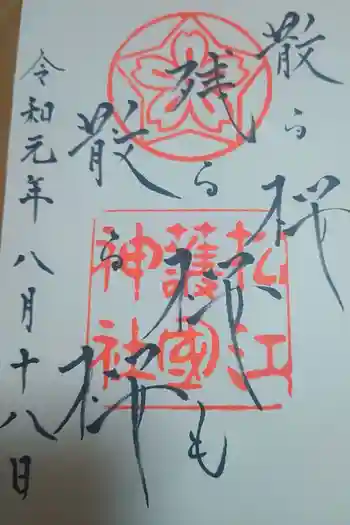 散る桜
残る桜も
散る桜
松江
護國
神社
令和元年八月十八日